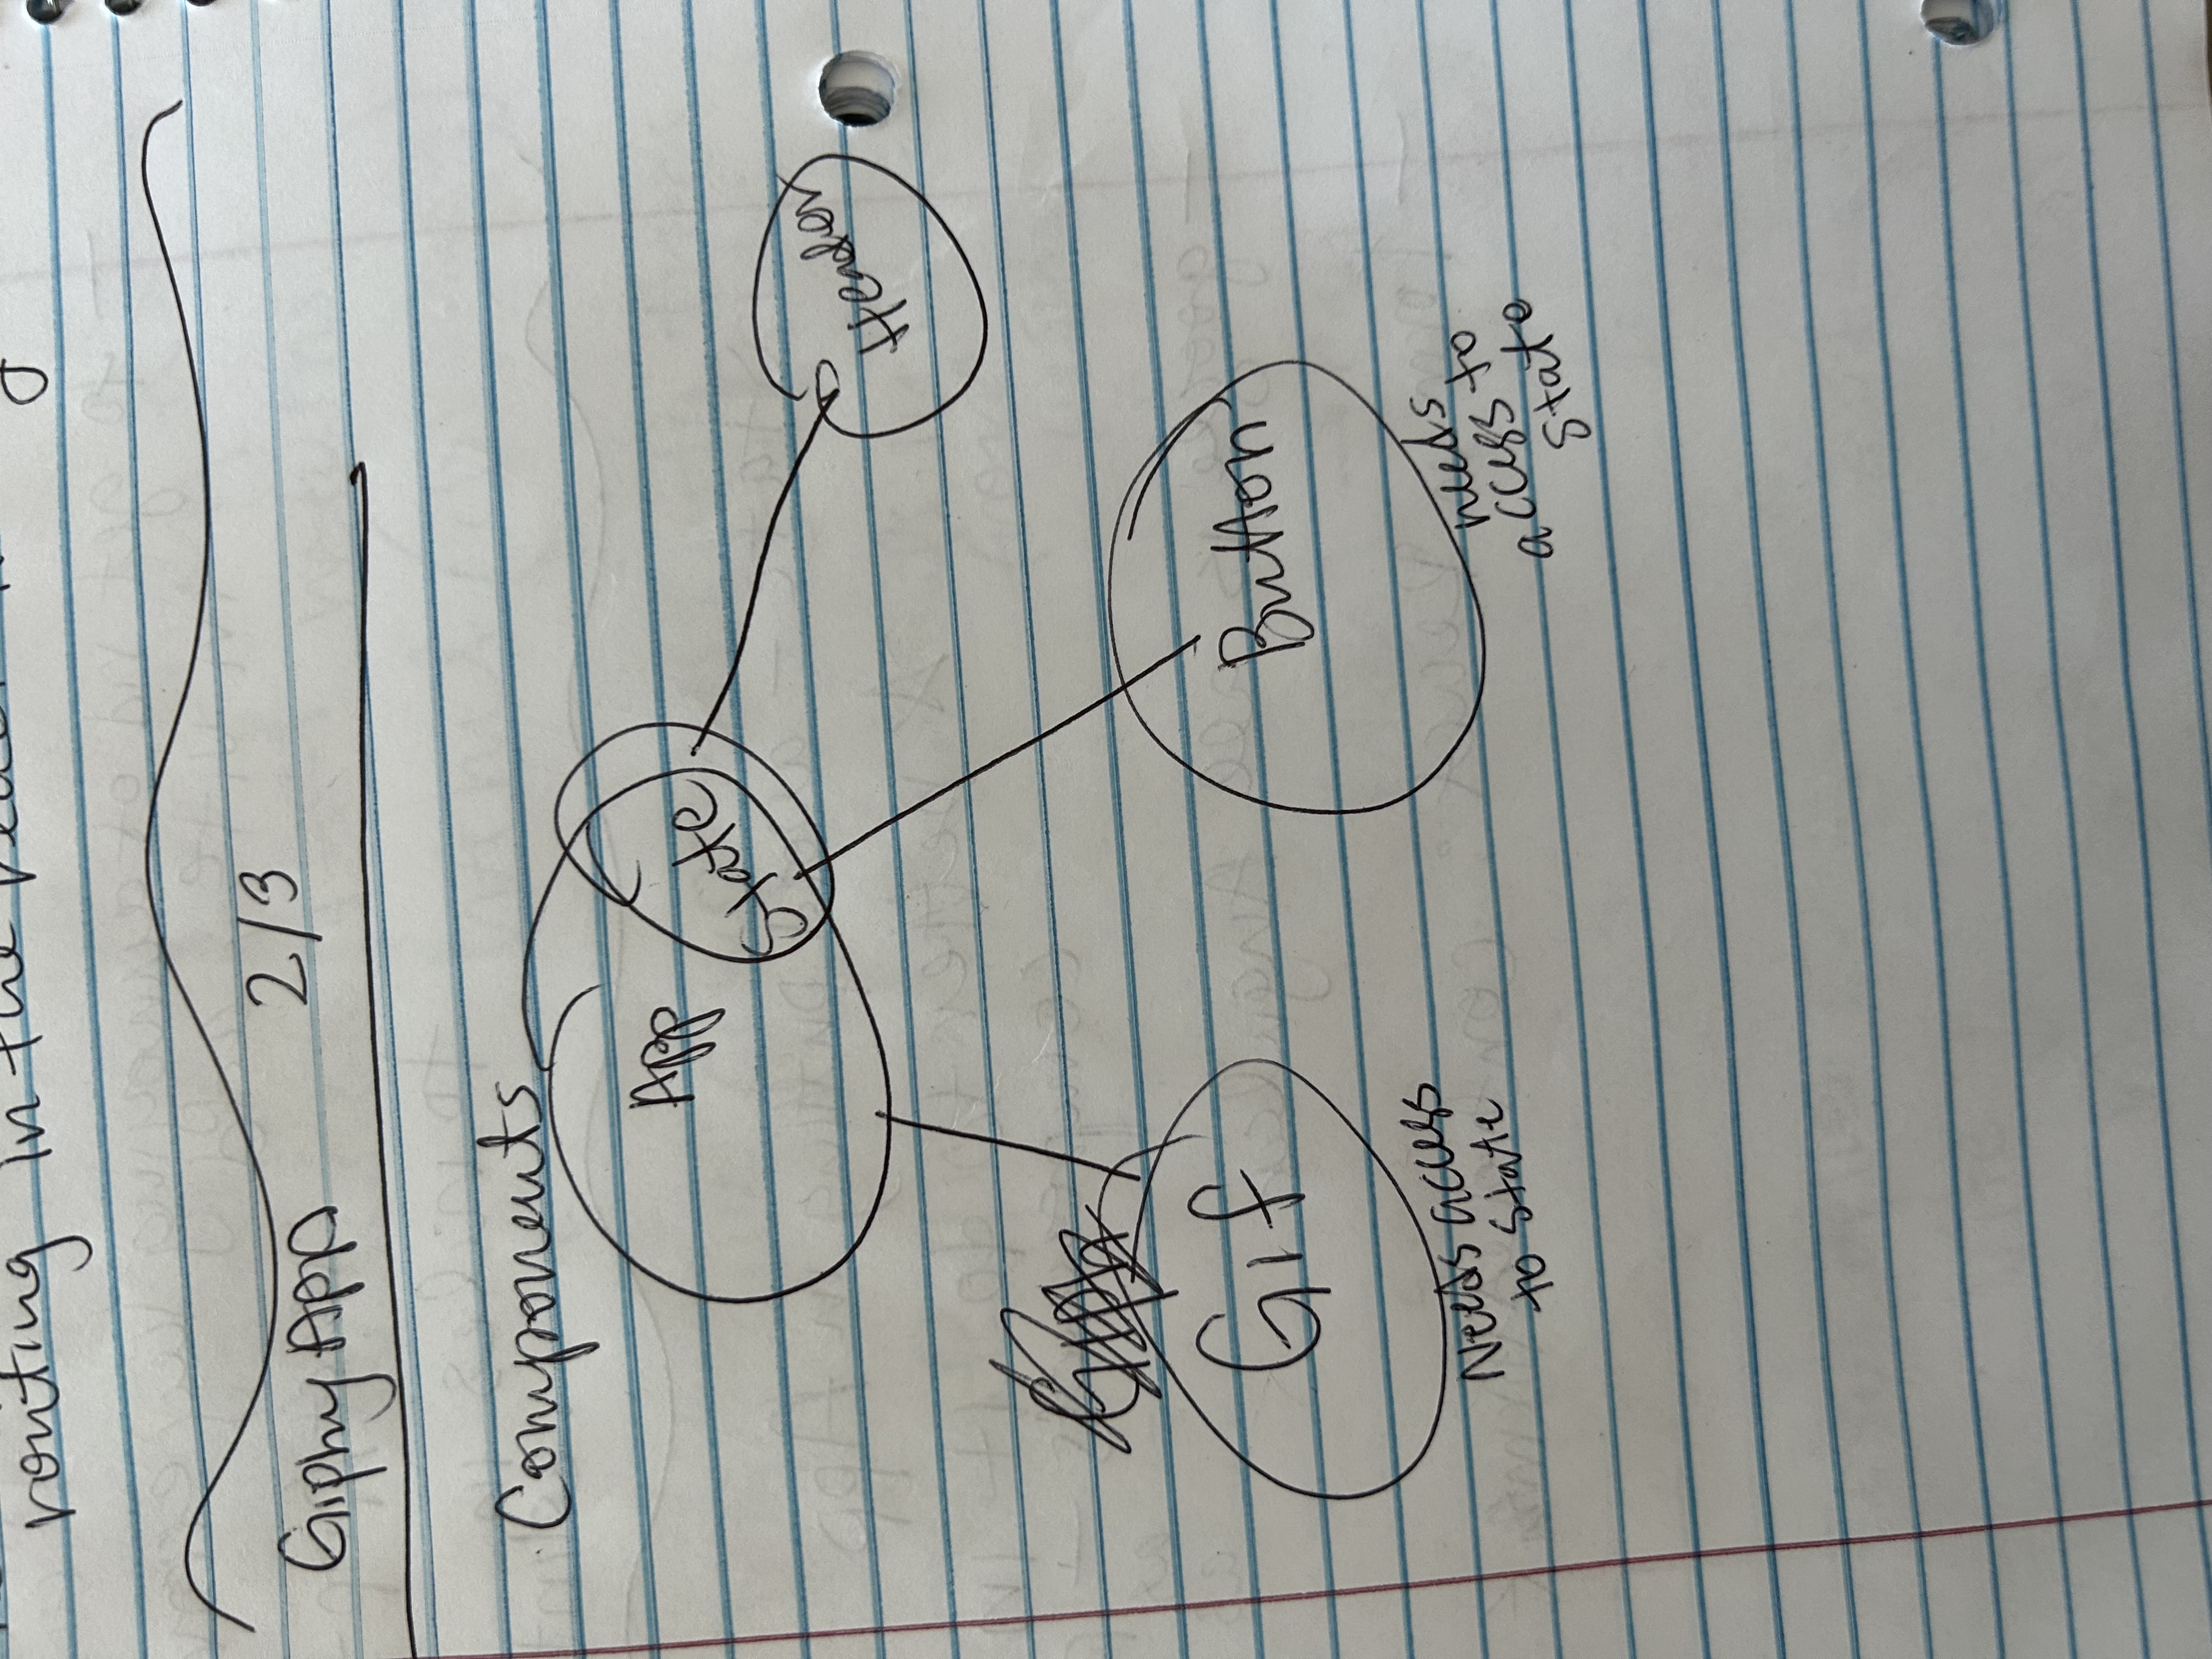 routing in the
Giphy App 2/3
Components
App
State
Header
Gif
Button
Needs access
to state
needs
access to
state